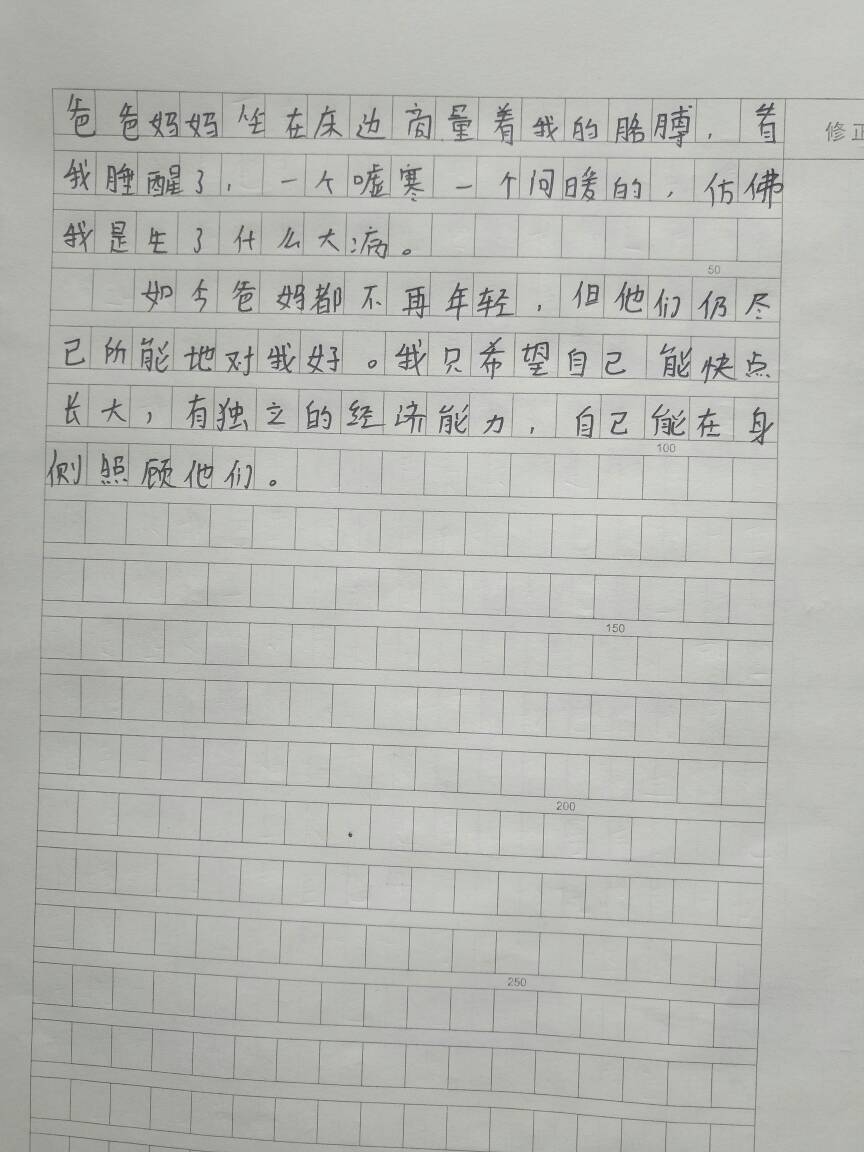 爸爸妈妈坐在床边商量着我的胳膊，看
修正
我睡醒了，一个嘘寒一个问暖的，仿佛
我是生了什么大病。
50
如今爸妈都不再年轻，但他们仍尽
己所能地对我好。我只希望自己能快点
长大，有独立的经济能力，自己能在身
100
侧照顾他们。
150
200
250